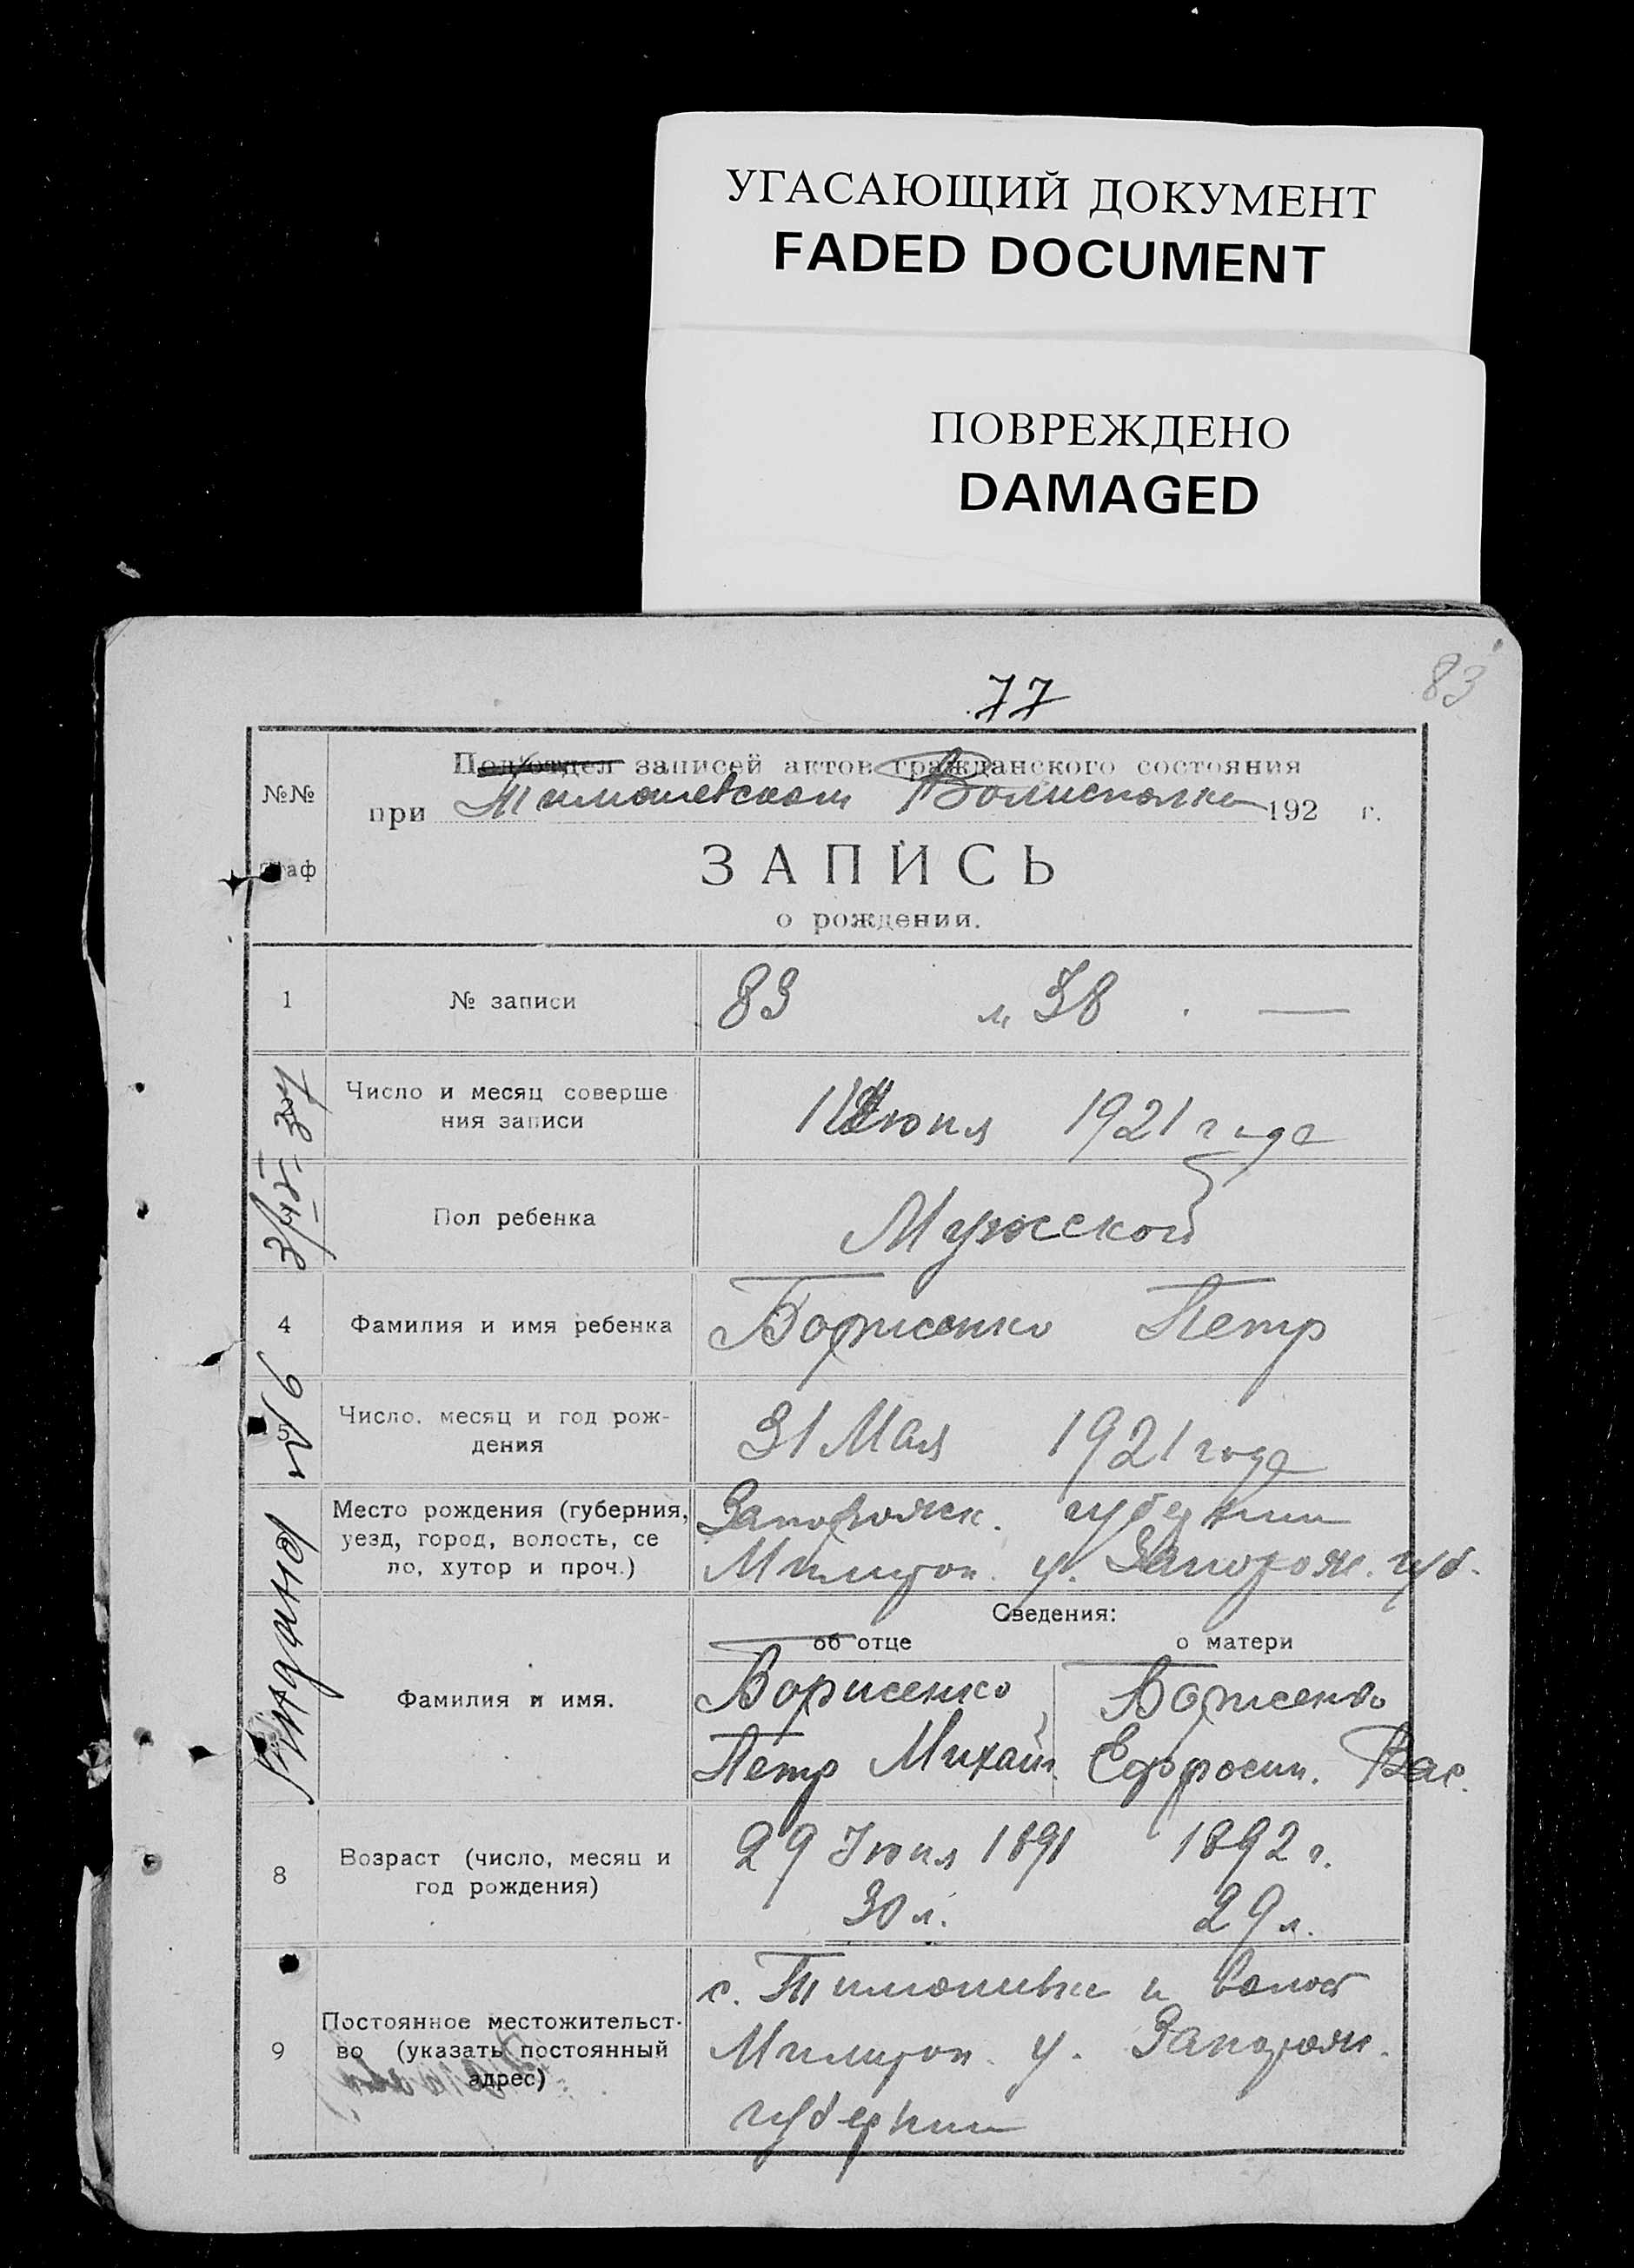 УГАСАЮЩИЙ ДОКУМЕНТ
FADED DOCUMENT
ПОВРЕЖДЕНО
DAMAGED
83
77
№№
граф
Подотдел записей актов гражданского состояния
при Тимошевском Волисполке 192 г.
ЗАПИСЬ
о рождении.
1 № записи 83 м 38 . —
Число и месяц соверше
ния записи
Июня 1921 года
Пол ребенка Мужской
4 Фамилия и имя ребенка Борисенко Петр
5 Число, месяц и год рож-
дения
31 Мая 1921 года
Место рождения (губерния,
уезд, город, волость, се
ло, хутор и проч.)
Запорожск. губернии
Мелитоп. у. Запорож. губ.
Сведения:
об отце о матери
Фамилия и имя.
Борисенко Борисенко
Петр Михайл. Ефросин. Вас.
8 Возраст (число, месяц и
год рождения)
29 Июня 1891 1892 г.
30 л. 29 л.
9 Постоянное местожительст-
во (указать постоянный
адрес)
с. Тимошивка и волост
Мелитоп. у. Запорож.
губернии
№ 6